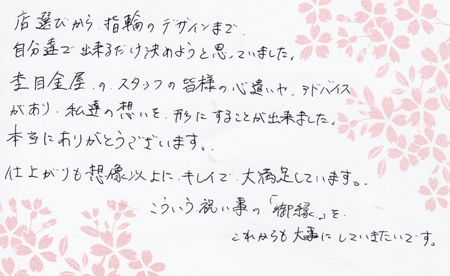 店選びから、指輪のデザインまで、
自分達で出来るだけ決めようと思っていました。
杢目金屋の、スタッフの皆様の心遣いや、アドバイス
があり、私達の想いを、形にすることが出来ました。
本当にありがとうございます。
仕上がりも想像以上に、キレイで、大満足しています。
こういう祝い事の「御縁」を
これからも大事にしていきたいです。